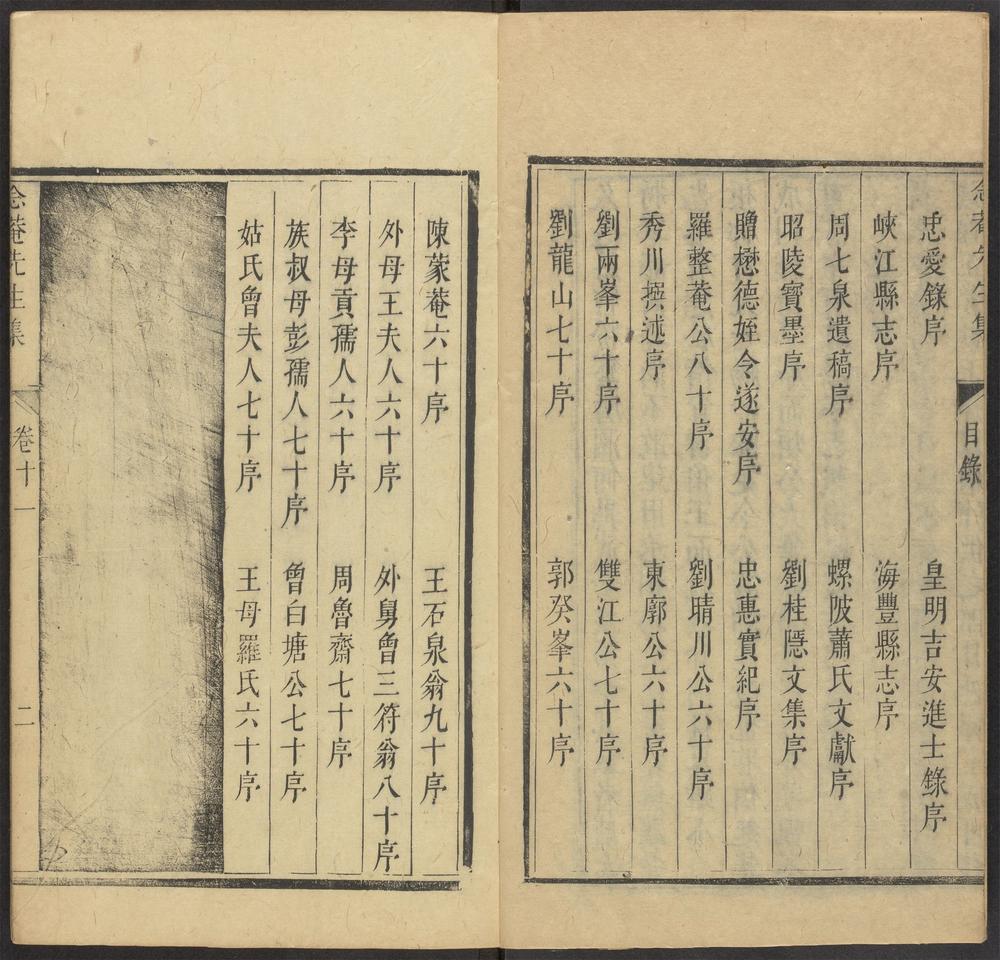 念菴先生集
目錄
忠愛錄序　皇明吉安進士錄序
峽江縣志序　海豐縣志序
周七泉遺稿序　螺陂蕭氏文獻序
昭陵寶墨序　劉桂隱文集序
贈懋德姪令遂安序　忠惠實紀序
羅整菴公八十序　劉晴川公六十序
秀川撰述序　東廓公六十序
劉兩峯六十序　雙江公七十序
劉龍山七十序　郭癸峯六十序
陳蒙菴六十序　王石泉翁九十序
外母王夫人六十序　外舅曾三符翁八十序
李母貢孺人六十序　周魯齋七十序
族叔母彭孺人七十序　曾白塘公七十序
姑氏曾夫人七十序　王母羅氏六十序
念菴先生集
卷十一
二